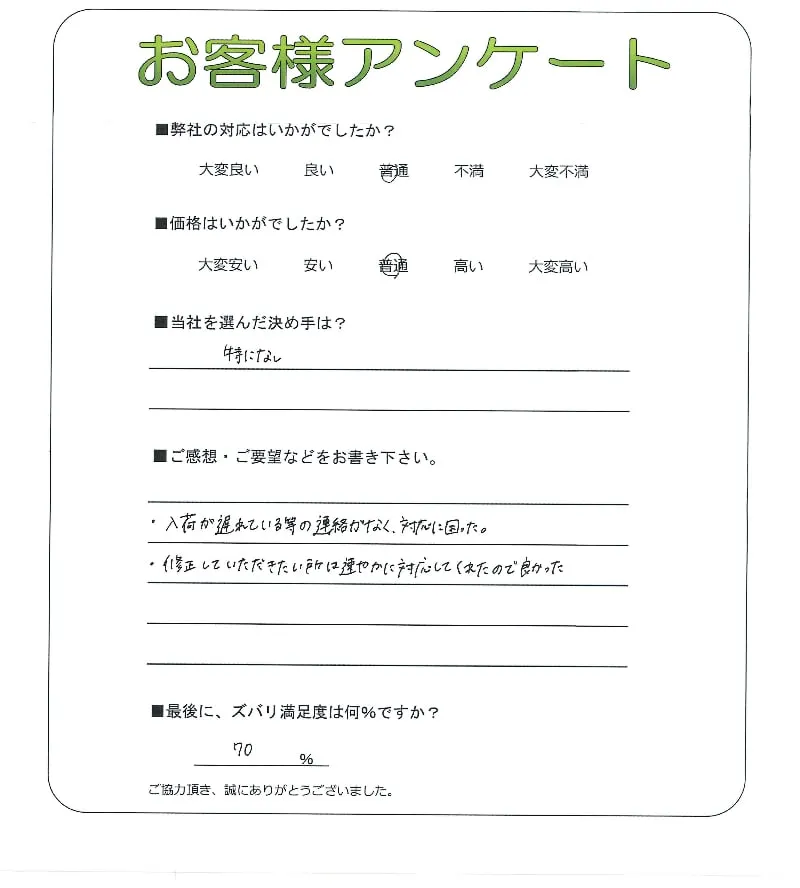 お客様アンケート
■弊社の対応はいかがでしたか？
大変良い 良い 普通 不満 大変不満
■価格はいかがでしたか？
大変安い 安い 普通 高い 大変高い
■当社を選んだ決め手は？
特になし
■ご感想・ご要望などをお書き下さい。
・入荷が遅れている等の連絡がなく、対応に困った。
・修正していただきたい所は速やかに対応してくれたので良かった
■最後に、ズバリ満足度は何％ですか？
70 ％
ご協力頂き、誠にありがとうございました。